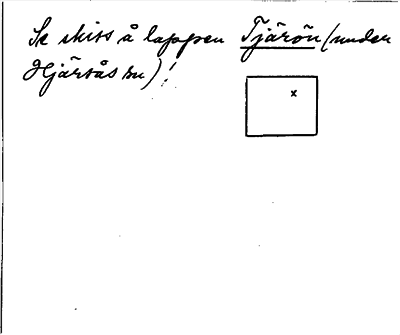 Se skiss å lappen Tjärön (under
Hjärtås nu)!
x